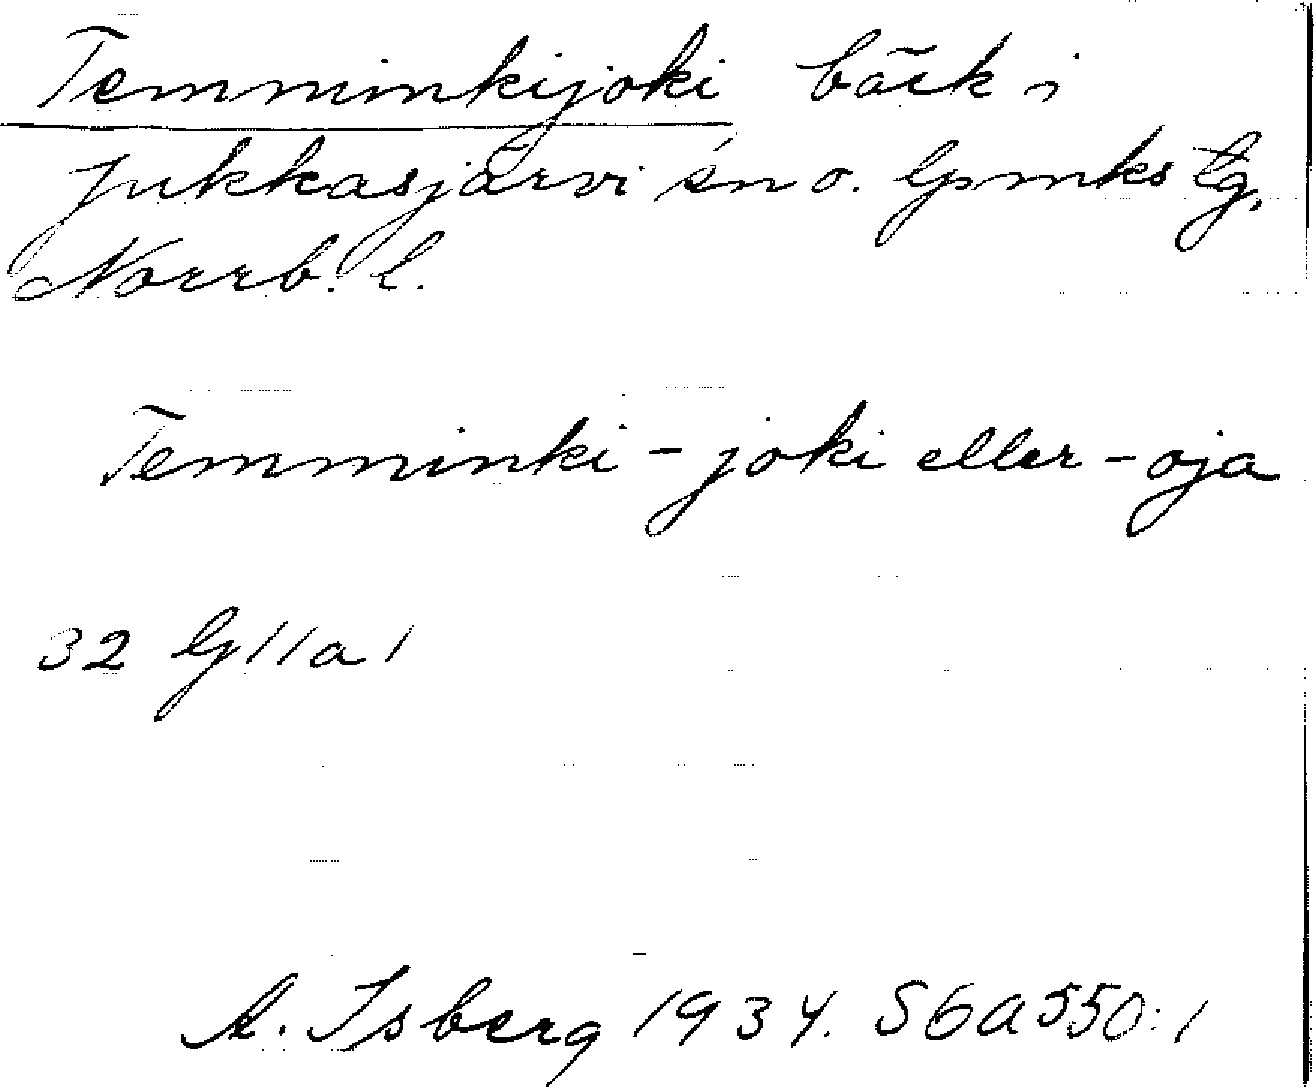 Temminkijoki bäck i
Jukkasjärvi sn o. lpmks tg,
Norrb. l.
Temminki - joki eller - oja
32 G 11 a 1
A. Isberg 1934. S6a550:1